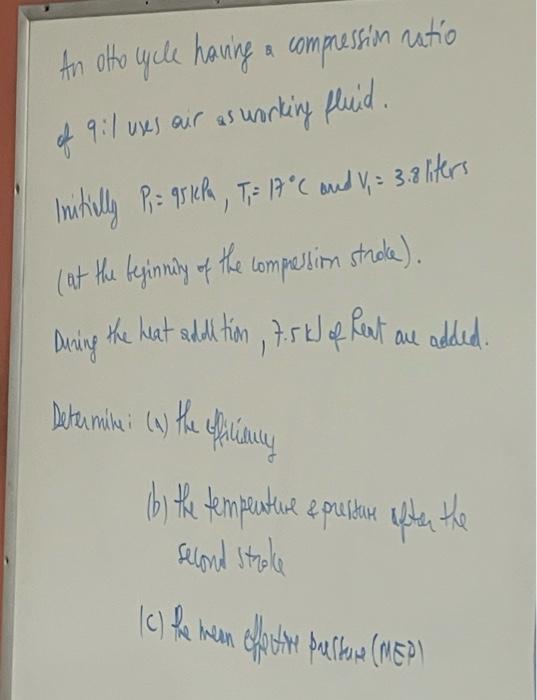 An otto cycle having a compression ratio
of 9:1 uses air as working fluid.
Initially P₁= 95kPa, T₁= 17°C and V₁= 3.8 liters
(at the beginning of the compression stroke).
During the heat addition, 7.5kJ of heat are added.
Determine: (a) the efficiency
(b) the temperature & pressure after the
second stroke
(c) the mean effective pressure (MEP)